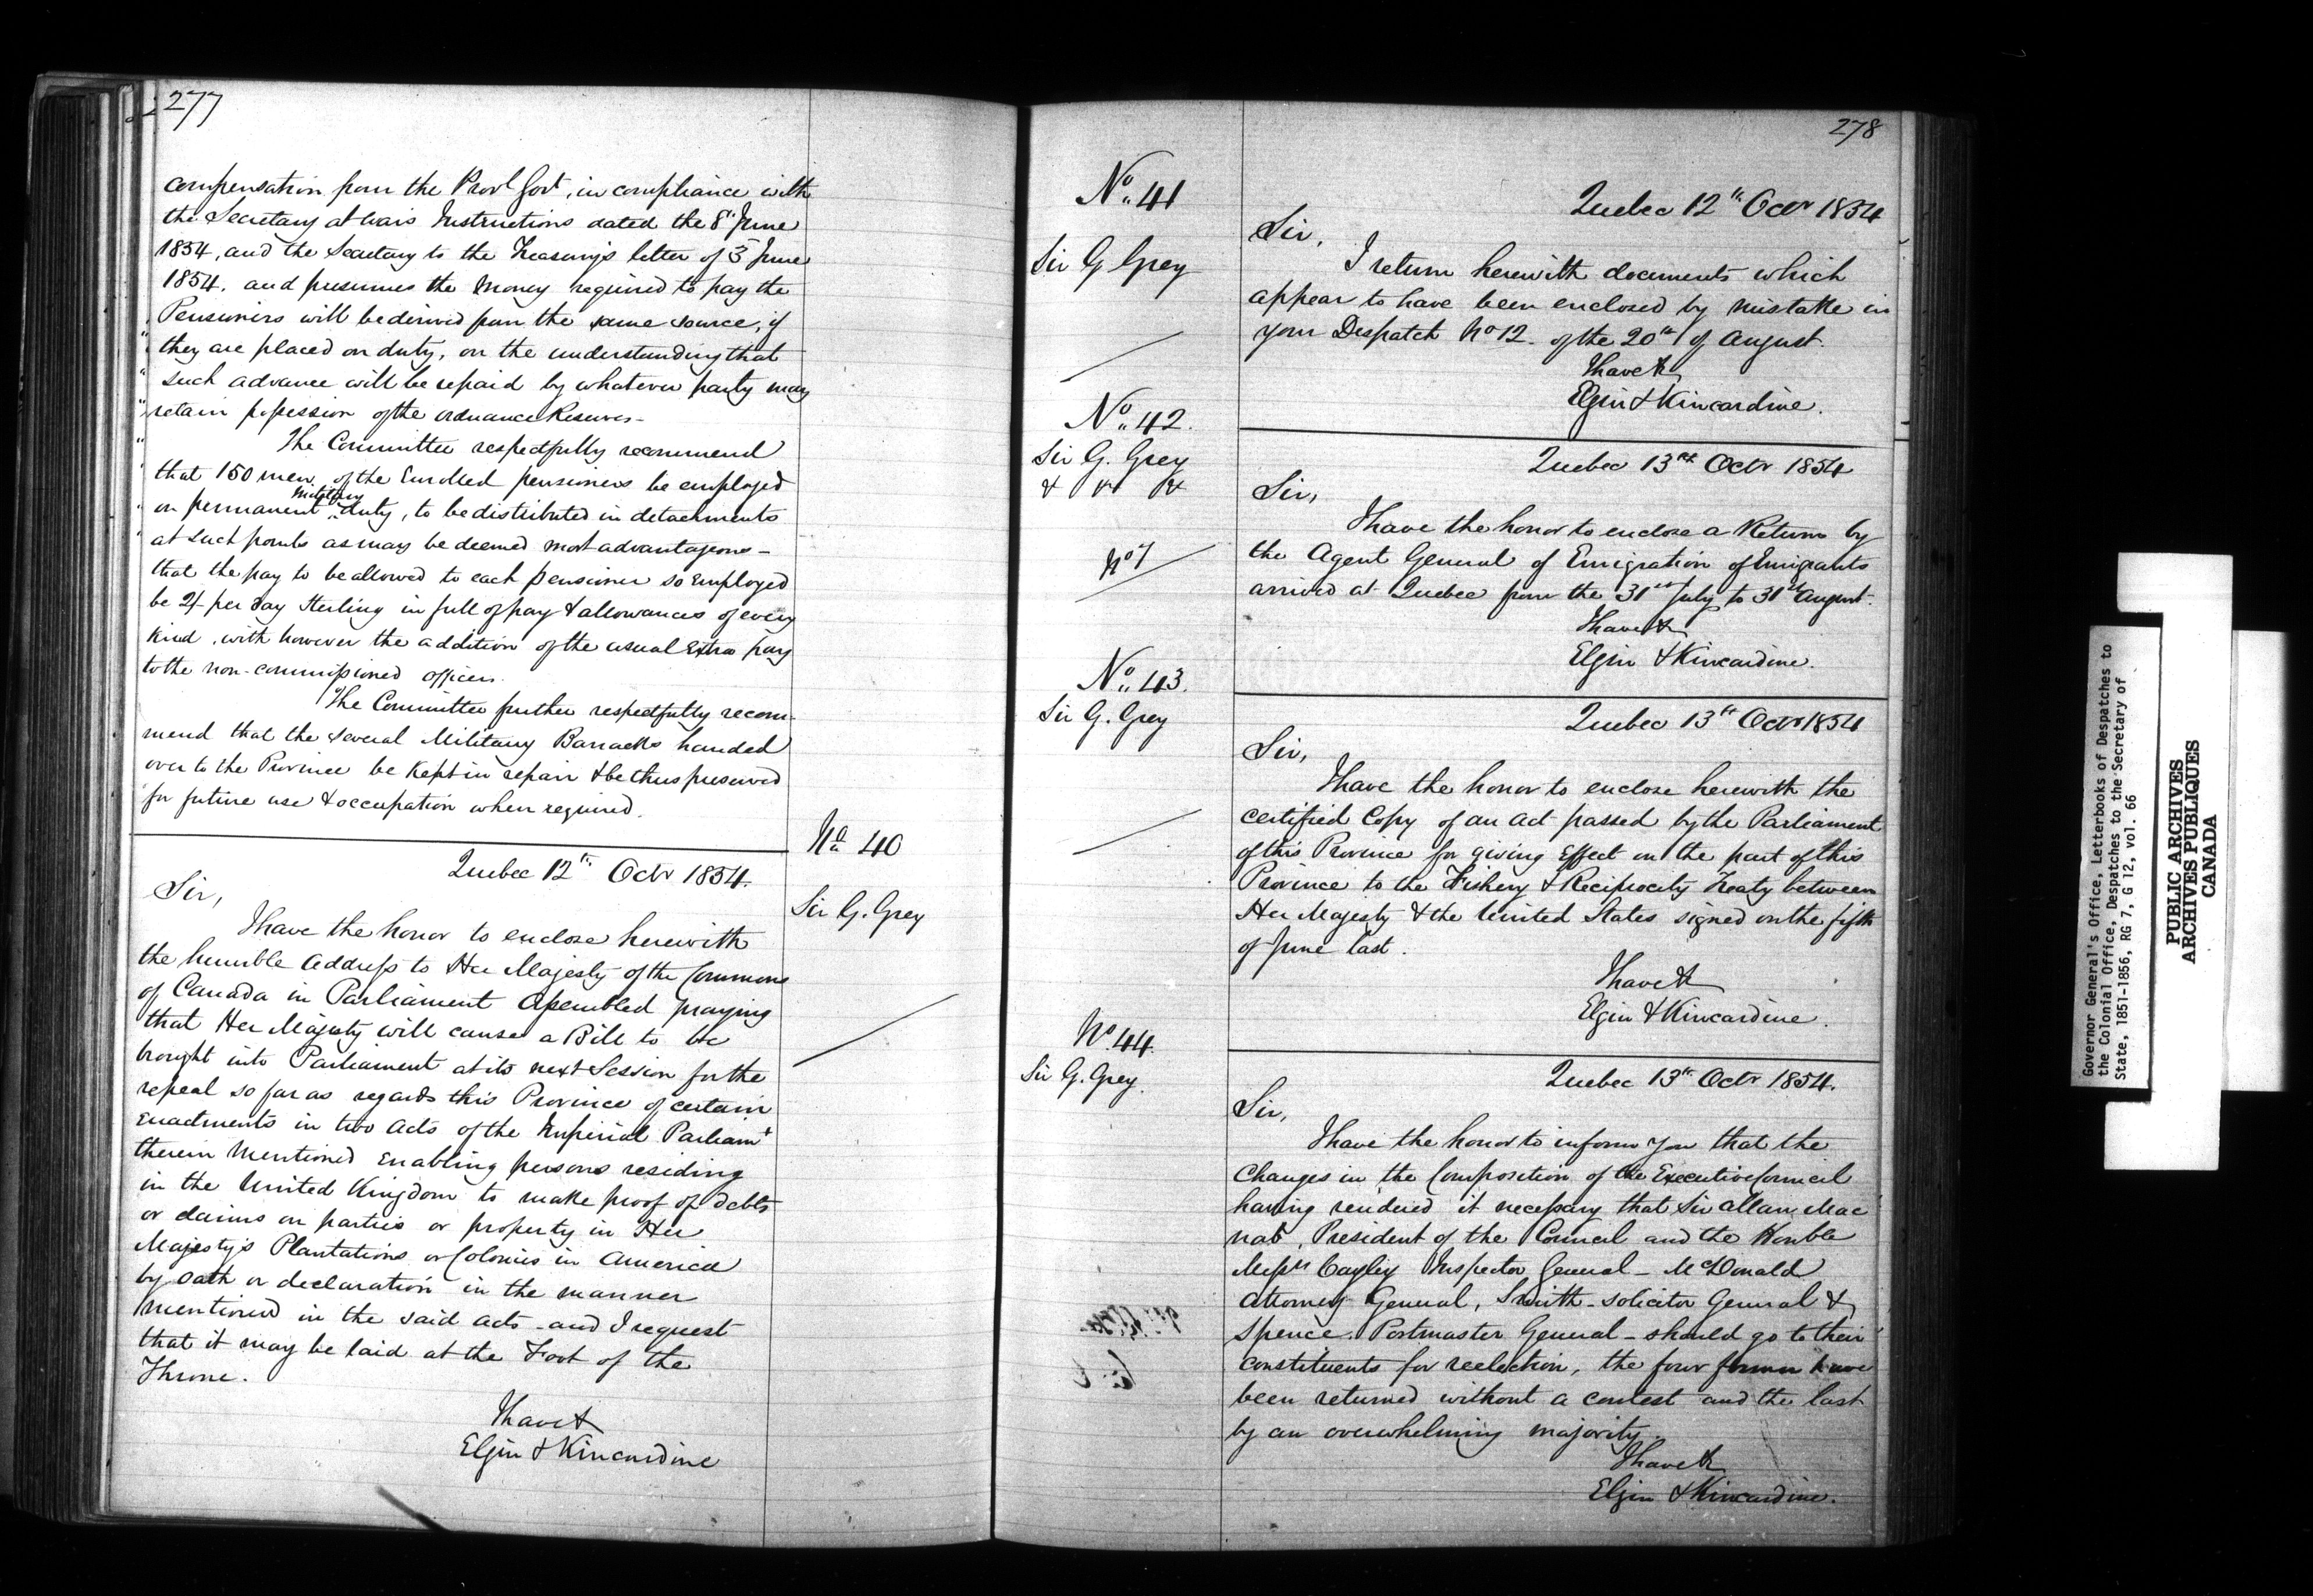 277
compensation from the Provl Govt, in compliance with
the Secretary at Wars Instructions dated the 8th June
1854, and the Secretary to the Treasury's letter of 3 June
1854. and presumes the money required to pay the
Pensioners will be derived from the same source, if
they are placed on duty, on the understanding that
such advance will be repaid by whatever party may
retain possession of the Ordnance Reserves-
The Committee respectfully recommend
that 150 men, of the Enrolled pensioners be employed
on permanent Military duty, to be distributed in detachments
at such points as may be deemed most advantageous-
that the pay to be allowed to each pensioner so employed
be 2/- per day Sterling in full of pay & allowances of every
kind, with however the addition of the usual Extra pay
to the non-commissioned officers.
The Committee further respectfully recom-
mend that the several Military Barracks handed
over to the Province be kept in repair & be thus preserved
for future use & occupation when required.
No 40
Sir G. Grey
Quebec 12th Octr 1854.
Sir,
I have the honor to enclose herewith
the humble Address to Her Majesty of the Commons
of Canada in Parliament Assembled praying
that Her Majesty will cause a Bill to be
brought into Parliament at its next Session for the
repeal so far as regards this Province of certain
enactments in two Acts of the Imperial Parliamt
therein mentioned enabling persons residing
in the United Kingdom to make proof of debts
or claims on parties or property in Her
Majesty's Plantations or Colonies in America
by oath or declaration in the manner
mentioned in the said Acts and I request
that it may be laid at the Foot of the
Throne.
I have &
Elgin & Kincardine
278
No. 41
Sir G Grey
Quebec 12th Octr 1854
Sir,
I return herewith documents which
appear to have been enclosed by mistake in
your Despatch No 12. of the 20th of August.
I have &
Elgin & Kincardine.
No. 42.
Sir G. Grey
& & &
No 1
Quebec 13th Octr 1854
Sir,
I have the honor to enclose a Return by
the Agent General of Emigration of Emigrants
arrived at Quebec from the 31st July to 31st August.
I have &
Elgin & Kincardine.
No. 43.
Sir G. Grey
Quebec 13th Octr 1854
Sir,
I have the honor to enclose herewith the
certified Copy of an Act passed by the Parliament
of this Province for giving Effect on the part of this
Province to the Fishery & Reciprocity Treaty between
Her Majesty & the United States signed on the fifth
of June last.
I have &
Elgin & Kincardine.
No. 44.
Sir G. Grey.
Quebec 13th Octr 1854.
Sir,
I have the honor to inform you that the
Changes in the Composition of the Executive Council
having rendered it necessary that Sir Allan Mac
nab, President of the Council and the Honble
Messrs Cayley Inspector General - McDonald
Attorney General, Smith - Solicitor General &
Spence. Postmaster General - should go to their
constituents for reelection, the four former have
been returned without a contest and the last
by an overwhelming majority.
I have &
Elgin & Kincardine.
Governor General's Office, Letterbooks of Despatches to
the Colonial Office, Despatches to the Secretary of
State, 1851-1856, RG 7, G 12, vol. 66
PUBLIC ARCHIVES
ARCHIVES PUBLIQUES
CANADA